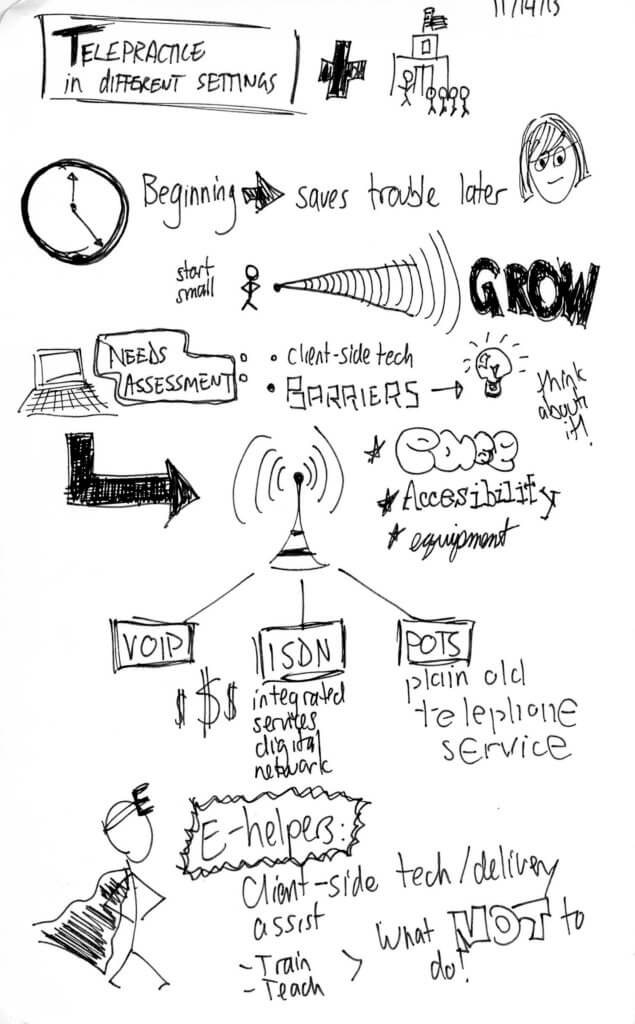 11/14/13
TELEPRACTICE
in DIFFERENT SETTINGS
Beginning
saves trouble later
start
small
GROW
NEEDS
ASSESSMENT
client-side tech
BARRIERS
think
about
it!
Accesibility
equipment
VOIP
ISDN
POTS
$ $ $
integrated
services
digital
network
plain old
telephone
service
E
E-helpers:
Client-side tech/delivery
assist
- Train
- Teach
> What NOT to
do!